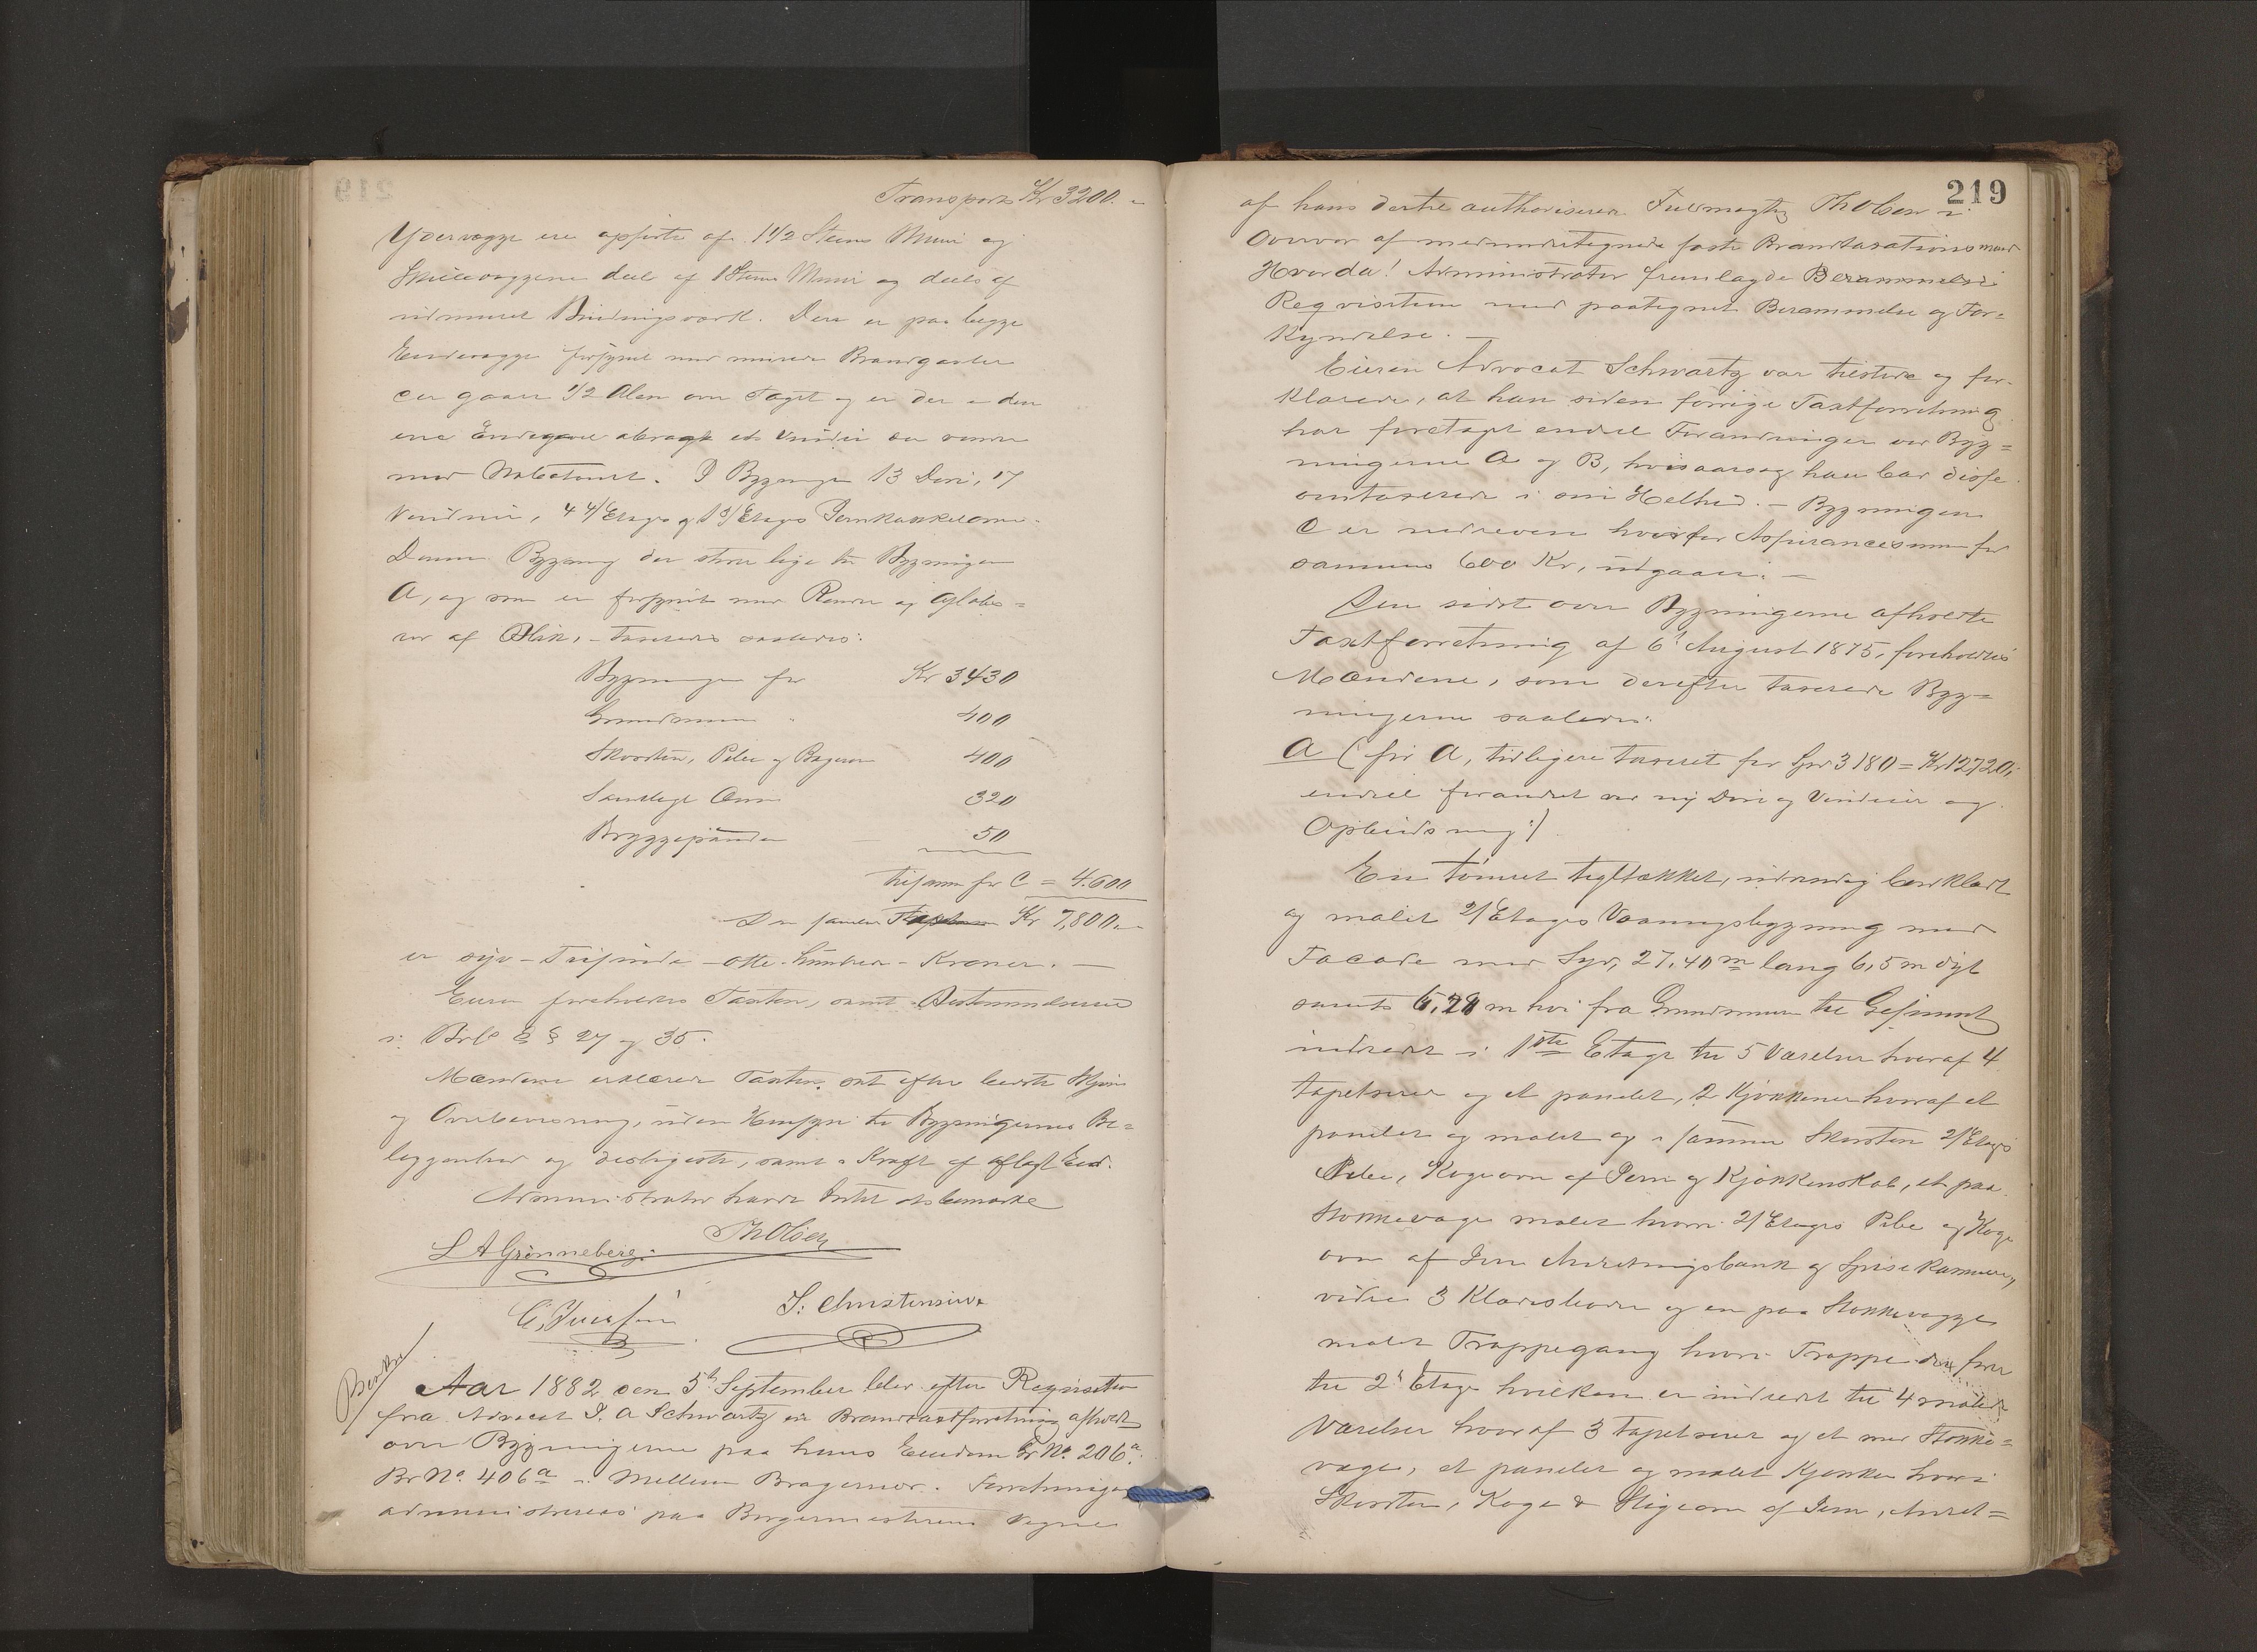 Transport Kr 3200. –
Ydervægge ere opførte af 1 1/2 Steens Muur og
Skillevæggene deel af 1 Steens Muur og deels af
udmuret Bindingsværk. Den er paa begge
Endevægge forsynet med murede Brandgavler
der gaaer 1/2 Alen over Taget og er der i den
ene Endegavl abragt et Vindu
med . I Bygningen 13 Døre, 17
Vinduer, 4 4/Etages og 1 3/Etages Jernkakkelovne.
Denne Bygning der støder lige til Bygningen
A, og som er forsynet med Render og Afløbs=
rør af Blik, – taxeredes saaledes:
Bygningen for Kr 3430
Grundmuren " 400
Skorsten, Piber og Bagerovn 400
Samtlige Ovne 320
Bryggepande 50
tilsammen for C = 4.600
Den samlede Kr 7,800. –
er syv – Tusinde – otte – hundrede – Kroner. –
Eieren foreholdtes Taxten, samt Bestemmelserne
i Brl. § § 27 og 35.
Mændene erklærede Taxten sat efter bedste Skjøn
og Overbeviisning, uden Hensyn til Bygningernes Be=
liggenhed og desligeste, samt i Kraft af aflagt Eed.
Administrator havde Intet at bemærke
L A Grønneberg. Th Olsen
S. Christensen
Beskr
Aar 1882 den 5te September blev efter Requisition
fra Advocat J. A Schwartz en Brandtaxtforretning afholdt
over Bygningerne paa hans Eiendom Gr No. 206a.
Br No. 406a i Mellem Bragernes. Forretningen
administreredes paa Borgermesterens Vegne
219
af hans dertil authoriserede Fuldmægtig Th Olsen i
Overvær af medundertegnede faste Brandtaxationsmænd
Hvorda! Administrator fremlagde Berammelse
Reqvisition med paategnet Berammelse og For=
kyndelse. –
Eieren Advocat Schwartz var tilstede og for-
klarede, at han siden forrige Taxtforretning
har foretaget endeel Forandringer ved Byg=
ningerne A og B, hvisaarsag han bad disse
omtaxerede i sin Helhed. – Bygningen
C er nedreven hvorfor Assurancesum for
samme 600 Kr, udgaaer. –
Den sidst over Bygningerne afholdte
Taxtforretning af 6te August 1875, foreholdtes
Mændene, som derefter taxerede Byg=
ningerne saaledes:
A (før A, tidligere taxeret for Spd 3180 = Kr 12720,
endeel forandret ved ny Døre og Vinduer og
Opbuds ning:)
En tømret teglstækket, udvendig bordklædt
og malet 2/Etages Vaaningsbygning med
Facade mod Syd, 27,40 m lang 6,5 m dyb
samt m høi fra Grundmuren til Gesimset
indredet i 1ste Etage til 5 Værelser hvoraf 4
tapetserede og et panelet, 2 Kjøkkener hvoraf et
panelet og malet og i samme Skorsten 2/Etages
Pibe, Kogeovn af Jern og Kjøkkenskab, et paa
Stokkevæge malet hvori 2/Etages Pibe og Koge
ovn af Jern Anretningsbænk og Spisekammer,
videre 3 Klædesboder og en paa Stokkevægge
malet Trappegang hvori Trappe der fører
til 2den Etage hvilken er indredet til 4 malede
Værelser hvoraf 3 tapetserede og et med Stokke=
væge, et panelet og malet Kjøkken hvori
Skorsten, Koge & Stigeovn af Jern, Anret=